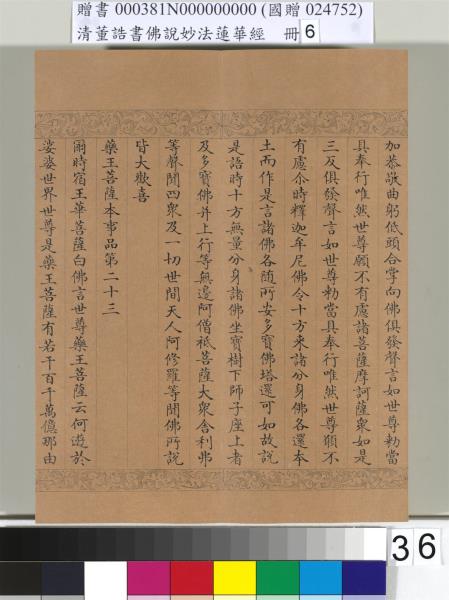 贈書 000381N000000000 (國贈 024752)
清董誥書佛說妙法蓮華經 冊6
加恭敬曲躬低頭合掌向佛俱發聲言如世尊勅當
具奉行唯然世尊願不有慮諸菩薩摩訶薩眾如是
三反俱發聲言如世尊勅當具奉行唯然世尊願不
有慮尒時釋迦牟尼佛令十方來諸分身佛各還本
土而作是言諸佛各隨所安多寶佛塔還可如故說
是語時十方無量分身諸佛坐寶樹下師子座上者
及多寶佛并上行等無邊阿僧祇菩薩大眾舍利弗
等聲聞四眾及一切世間天人阿修羅等聞佛所說
皆大歡喜
藥王菩薩本事品第二十三
爾時宿王華菩薩白佛言世尊藥王菩薩云何遊於
娑婆世界世尊是藥王菩薩有若干百千萬億那由
36